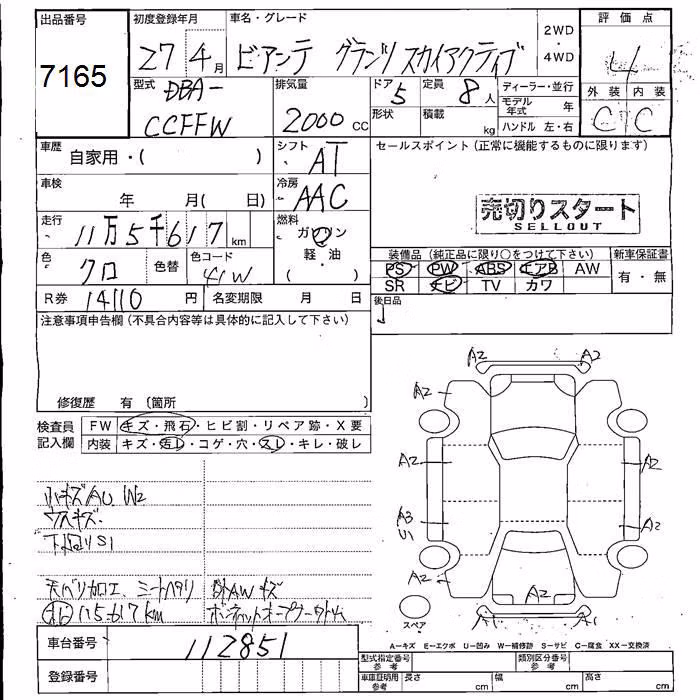 出品番号 初度登録年月 車名・グレード 2WD・4WD 評価点
7165 27 4月 ビアンテ グランツ スカイアクティブ 4
型式 DBA- 排気量 ドア 5 定員 8人 ディーラー・並行 外装 内装
CCFFW 2000 CC 形状 積載 kg モデル年式 年 C C
ハンドル 左・右
車歴 自家用・( ) シフト AT セールスポイント(正常に機能するものに限ります)
車検 年 月( 日) 冷房 AAC
売切りスタート
SELLOUT
走行 11万5千617 km 燃料 ガソリン
軽・油
( )
色 クロ 色替 色コード 41W
装備品(純正品に限り○をつけて下さい) 新車保証書
PS PW ABS エアB AW 有・無
SR ナビ TV カワ
R券 14110円 名変期限 月 日 後日品
注意事項申告欄(不具合内容等は具体的に記入して下さい)
修復歴 有(箇所 )
検査員記入欄 FW キズ・飛石・ヒビ割・リペア跡・X要
内装 キズ・汚レ・コゲ・穴・スレ・キレ・破レ
A2 A2
A2
A2 A2
A3 U1 A2
A2
A1 A1
スペア
小キズAU W2
ウスキズ
下回りS1
天ベリカロエ、シートヘタリ 外AWキズ
115.617km ボンネットオープナー
A-キズ E-エクボ U-凹み W-補修跡 S-サビ C-腐食 XX-交換済
車台番号 112851
登録番号
型式指定番号 参考 類別区分番号 参考
車庫証明用 参考 長さ cm 幅 cm 高さ cm